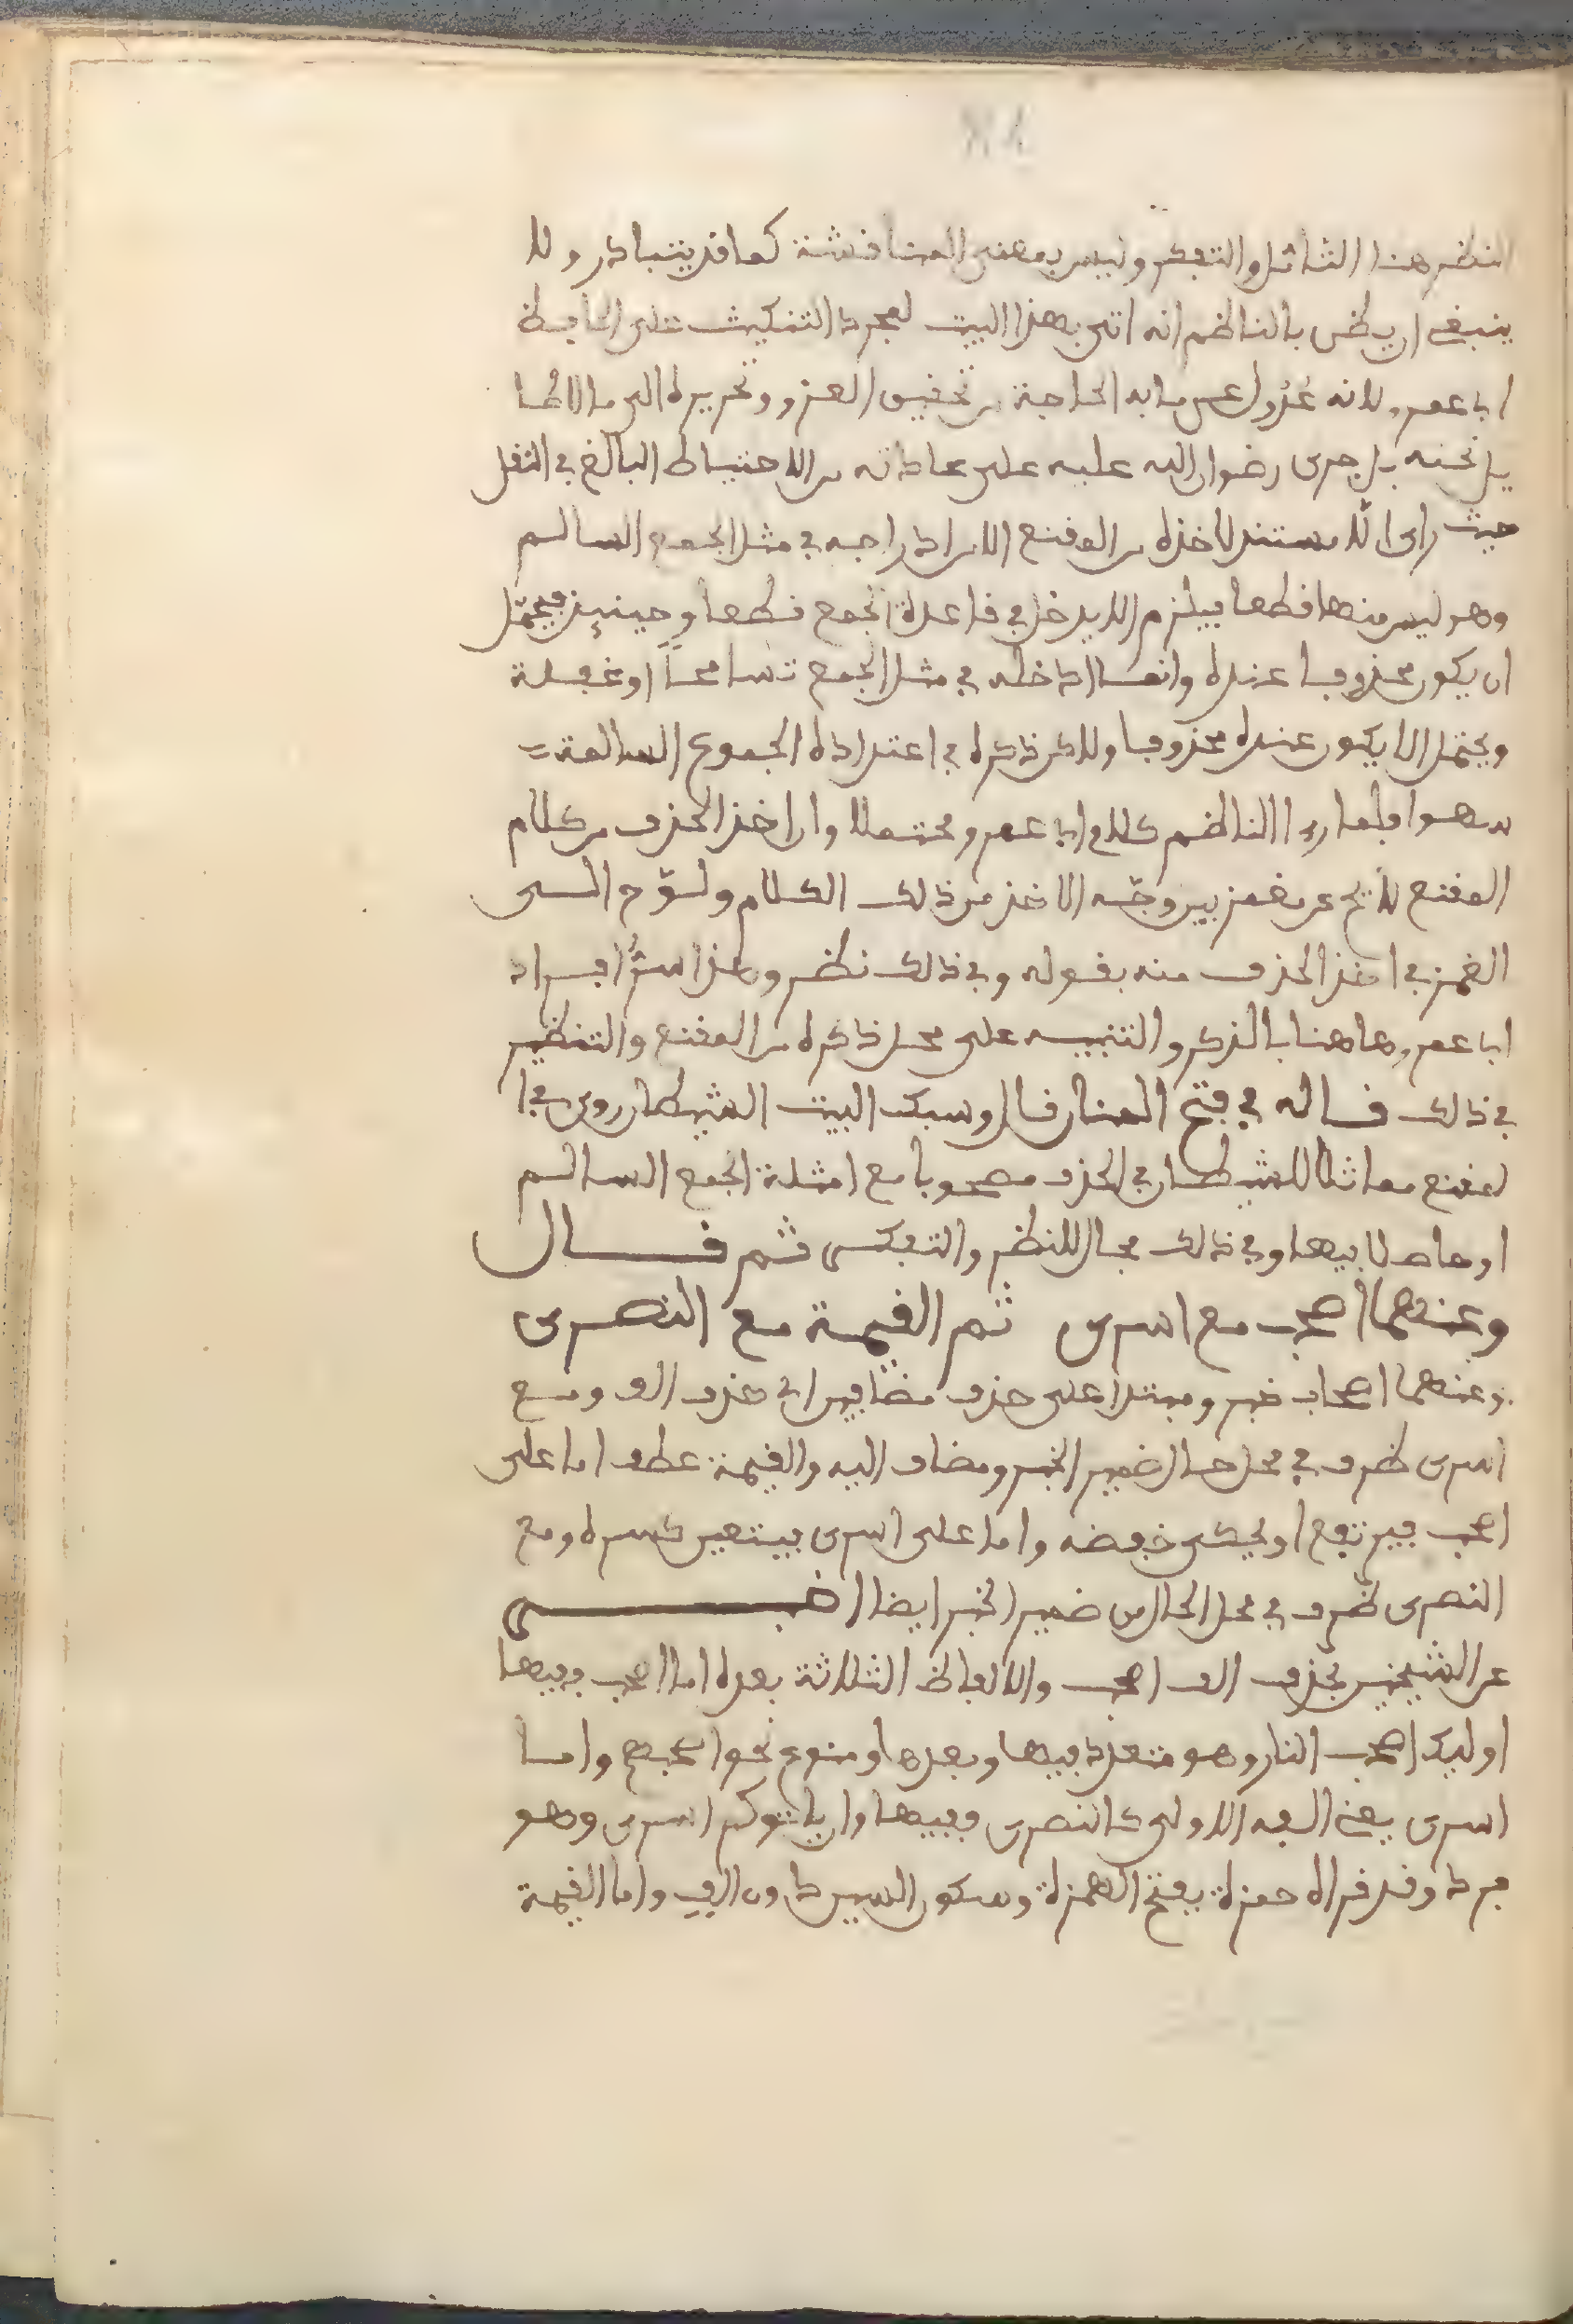 النظر هنا التأمل والتفكر وليس بمعنى المناقشة كما قد يتبادر ولا
ينبغي ان يظن بالناظم انه اتى بهذا البيت لمجرد التنكيت على الحافظ
ابا عمرو لانه عدول عن ما به الحاجة من تحقيق العزو وتحريره الى ما لا
تحته بل جرى رضوان الله عليه على عادته من الاحتياط البالغ في النقل
حيث راى الا مستند لاخذه من المقنع الا ادراجه في مثل الجمع السالم
وهو ليس منها قطعا فيلزم الا يدخل في قاعدة الجمع قطعا وحينئذ فيحتمل
ان يكون محذوفا عنده وانما ادخله في مثل الجمع تسامحا او غفلة
ويحتمل الا يكون عنده محذوفا ولاكن ذكره في اعتداده الجموع السالمة
سهوا فلما رءا الناظم كلام ابا عمرو محتملا وان اخذ الحذف من كلام
المقنع لا يخ عن مغمز بين وجه الاخذ من ذلك الكلام ولوح الى
الغمز في اخذ الحذف منه بقوله وفي ذلك نظر وهذا سر افراد
ابا عمرو هاهنا بالذكر والتنبيه على محل ذكره من المقنع والتنظير
في ذلك قاله في فتح المنان قال وسبك البيت الشيطان روى في ا
لمقنع مماثلا للشيطان في الحذف مصحوبا مع امثلة الجمع السالم
او حاصلا فيها وفي ذلك مجال للنظر والتفكر ثم قال
وعنهما اصحب مع اسرى ثم القيمة مع النصرى
وعنهما اصحاب خبر ومبتدا على حذف مضافين اي حذف الف ومع
اسرى ظرف في محل حال ضمير الخبر ومضاف اليه والقيمة عطف اما على
اصحب فيرتفع او يحكى خفضه واما على اسرى فيتعين كسره ومع
النصرى ظرف في محل الحال من ضمير الخبر ايضا اخبر
عن الشيخين بحذف الف اصحب والالفاظ الثلاثة بعده اما اصحب ففيها
اوليك اصحب النار وهو متعدد فيها وبعدها ومنوع نحو اصحبهم واما
اسرى يعني الفه الاولى كالنصرى ففيها وان ياتوكم اسرى وهو
فرد وقد قراه حمزة بفتح الهمزة وسكون السين دون الف واما القيمة